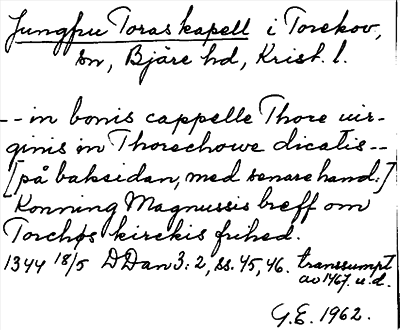 Jungfru Toras kapell i Torekov,
sn, Bjäre hd, Krist. l.
-- in bonis cappelle Thore uir-
ginis in Thorechowe dicatis --
[på baksidan, med senare hand.]
Konning Magnussis breff om
Torchøs kirckis frihed.
1344 18/5 DDan 3:2, ss. 45, 46. transsumpt
av 1467. u.d.
G.E. 1962.